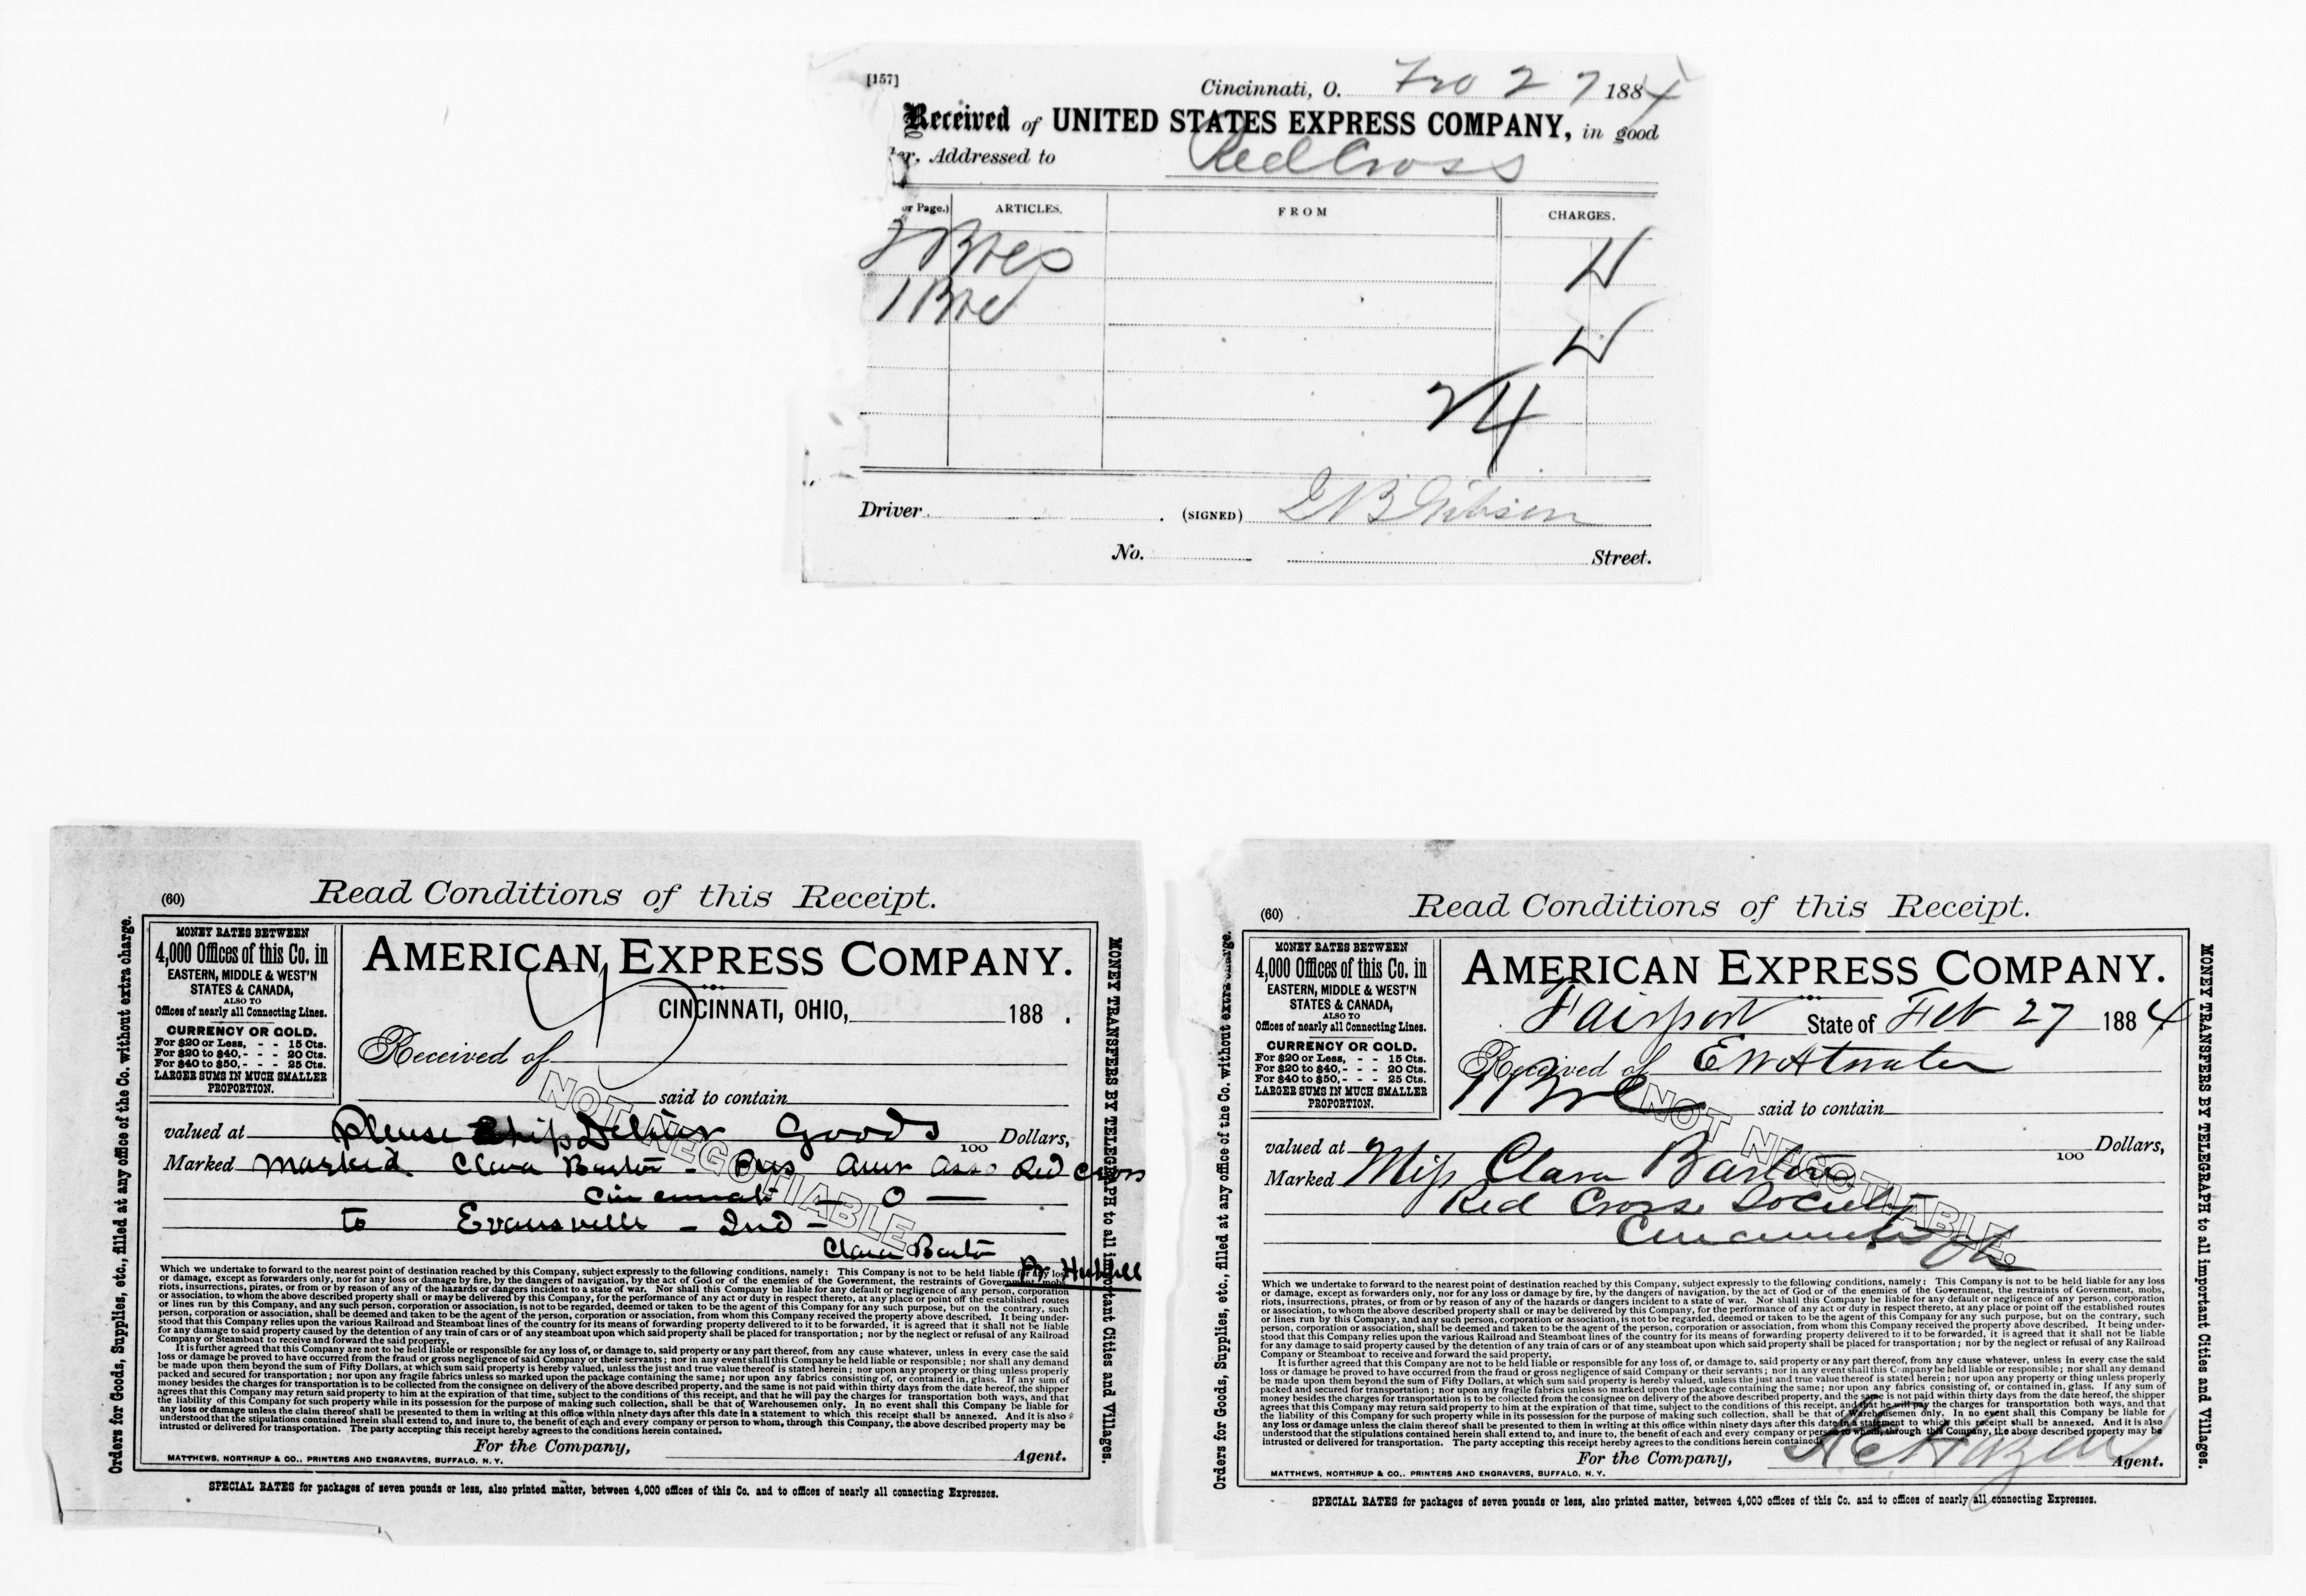 [157]
Cincinnati, O. 27 1884
Received of UNITED STATES EXPRESS COMPANY, in good
Addressed to Red Cross
or Page.) ARTICLES. FROM CHARGES.
24
Driver (SIGNED) Gibson
No. Street.
(60) Read Conditions of this Receipt.
MONEY RATES BETWEEN
4,000 Offices of this Co. in
EASTERN, MIDDLE & WEST'N
STATES & CANADA,
ALSO TO
Offices of nearly all Connecting Lines.
CURRENCY OR GOLD.
For $20 or Less, - - 15 Cts.
For $20 to $40, - - - 20 Cts.
For $40 to $50, - - - 25 Cts.
LARGER SUMS IN MUCH SMALLER
PROPORTION.
AMERICAN EXPRESS COMPANY.
CINCINNATI, OHIO, 188 .
Received of
said to contain
NOT NEGOTIABLE
valued at Please Ship Deliver Goods 100 Dollars,
Marked Marked Clara Barton - Pres Amr Asso Red Cross
Cincinnati - O —
to Evansville - Ind -
Clara Barton
Pr Hubbell
Which we undertake to forward to the nearest point of destination reached by this Company, subject expressly to the following conditions, namely: This Company is not to be held liable for any loss
or damage, except as forwarders only, nor for any loss or damage by fire, by the dangers of navigation, by the act of God or of the enemies of the Government, the restraints of Government, mobs,
riots, insurrections, pirates, or from or by reason of any of the hazards or dangers incident to a state of war. Nor shall this Company be liable for any default or negligence of any person, corporation
or association, to whom the above described property shall or may be delivered by this Company, for the performance of any act or duty in respect thereto, at any place or point off the established routes
or lines run by this Company, and any such person, corporation or association, is not to be regarded, deemed or taken to be the agent of this Company for any such purpose, but on the contrary, such
person, corporation or association, shall be deemed and taken to be the agent of the person, corporation or association, from whom this Company received the property above described. It being under-
stood that this Company relies upon the various Railroad and Steamboat lines of the country for its means of forwarding property delivered to it to be forwarded, it is agreed that it shall not be liable
for any damage to said property caused by the detention of any train of cars or of any steamboat upon which said property shall be placed for transportation; nor by the neglect or refusal of any Railroad
Company or Steamboat to receive and forward the said property.
It is further agreed that this Company are not to be held liable or responsible for any loss of, or damage to, said property or any part thereof, from any cause whatever, unless in every case the said
loss or damage be proved to have occurred from the fraud or gross negligence of said Company or their servants; nor in any event shall this Company be held liable or responsible; nor shall any demand
be made upon them beyond the sum of Fifty Dollars, at which sum said property is hereby valued, unless the just and true value thereof is stated herein; nor upon any property or thing unless properly
packed and secured for transportation; nor upon any fragile fabrics unless so marked upon the package containing the same; nor upon any fabrics consisting of, or contained in, glass. If any sum of
money besides the charges for transportation is to be collected from the consignee on delivery of the above described property, and the same is not paid within thirty days from the date hereof, the shipper
agrees that this Company may return said property to him at the expiration of that time, subject to the conditions of this receipt, and that he will pay the charges for transportation both ways, and that
the liability of this Company for such property while in its possession for the purpose of making such collection, shall be that of Warehousemen only. In no event shall this Company be liable for
any loss or damage unless the claim thereof shall be presented to them in writing at this office within ninety days after this date in a statement to which this receipt shall be annexed. And it is also
understood that the stipulations contained herein shall extend to, and inure to, the benefit of each and every company or person to whom, through this Company, the above described property may be
intrusted or delivered for transportation. The party accepting this receipt hereby agrees to the conditions herein contained.
For the Company,
Agent.
MATTHEWS, NORTHRUP & CO., PRINTERS AND ENGRAVERS, BUFFALO, N. Y.
SPECIAL RATES for packages of seven pounds or less, also printed matter, between 4,000 offices of this Co. and to offices of nearly all connecting Expresses.
Orders for Goods, Supplies, etc., filled at any office of the Co. without extra charge.
MONEY TRANSFERS BY TELEGRAPH to all important Cities and Villages.
(60) Read Conditions of this Receipt.
MONEY RATES BETWEEN
4,000 Offices of this Co. in
EASTERN, MIDDLE & WEST'N
STATES & CANADA,
ALSO TO
Offices of nearly all Connecting Lines.
CURRENCY OR GOLD.
For $20 or Less, - - 15 Cts.
For $20 to $40, - - - 20 Cts.
For $40 to $50, - - - 25 Cts.
LARGER SUMS IN MUCH SMALLER
PROPORTION.
AMERICAN EXPRESS COMPANY.
Fairport State of Feb 27 1884
Received of E W Atwater
1 said to contain
NOT NEGOTIABLE.
valued at 100 Dollars,
Marked Miss Clara Barton
Red Cross Society
Cincinnati
Which we undertake to forward to the nearest point of destination reached by this Company, subject expressly to the following conditions, namely: This Company is not to be held liable for any loss
or damage, except as forwarders only, nor for any loss or damage by fire, by the dangers of navigation, by the act of God or of the enemies of the Government, the restraints of Government, mobs,
riots, insurrections, pirates, or from or by reason of any of the hazards or dangers incident to a state of war. Nor shall this Company be liable for any default or negligence of any person, corporation
or association, to whom the above described property shall or may be delivered by this Company, for the performance of any act or duty in respect thereto, at any place or point off the established routes
or lines run by this Company, and any such person, corporation or association, is not to be regarded, deemed or taken to be the agent of this Company for any such purpose, but on the contrary, such
person, corporation or association, shall be deemed and taken to be the agent of the person, corporation or association, from whom this Company received the property above described. It being under-
stood that this Company relies upon the various Railroad and Steamboat lines of the country for its means of forwarding property delivered to it to be forwarded, it is agreed that it shall not be liable
for any damage to said property caused by the detention of any train of cars or of any steamboat upon which said property shall be placed for transportation; nor by the neglect or refusal of any Railroad
Company or Steamboat to receive and forward the said property.
It is further agreed that this Company are not to be held liable or responsible for any loss of, or damage to, said property or any part thereof, from any cause whatever, unless in every case the said
loss or damage be proved to have occurred from the fraud or gross negligence of said Company or their servants; nor in any event shall this Company be held liable or responsible; nor shall any demand
be made upon them beyond the sum of Fifty Dollars, at which sum said property is hereby valued, unless the just and true value thereof is stated herein; nor upon any property or thing unless properly
packed and secured for transportation; nor upon any fragile fabrics unless so marked upon the package containing the same; nor upon any fabrics consisting of, or contained in, glass. If any sum of
money besides the charges for transportation is to be collected from the consignee on delivery of the above described property, and the same is not paid within thirty days from the date hereof, the shipper
agrees that this Company may return said property to him at the expiration of that time, subject to the conditions of this receipt, and that he will pay the charges for transportation both ways, and that
the liability of this Company for such property while in its possession for the purpose of making such collection, shall be that of Warehousemen only. In no event shall this Company be liable for
any loss or damage unless the claim thereof shall be presented to them in writing at this office within ninety days after this date in a statement to which this receipt shall be annexed. And it is also
understood that the stipulations contained herein shall extend to, and inure to, the benefit of each and every company or person to whom, through this Company, the above described property may be
intrusted or delivered for transportation. The party accepting this receipt hereby agrees to the conditions herein contained.
For the Company,
Agent.
MATTHEWS, NORTHRUP & CO., PRINTERS AND ENGRAVERS, BUFFALO, N. Y.
SPECIAL RATES for packages of seven pounds or less, also printed matter, between 4,000 offices of this Co. and to offices of nearly all connecting Expresses.
Orders for Goods, Supplies, etc., filled at any office of the Co. without extra charge.
MONEY TRANSFERS BY TELEGRAPH to all important Cities and Villages.